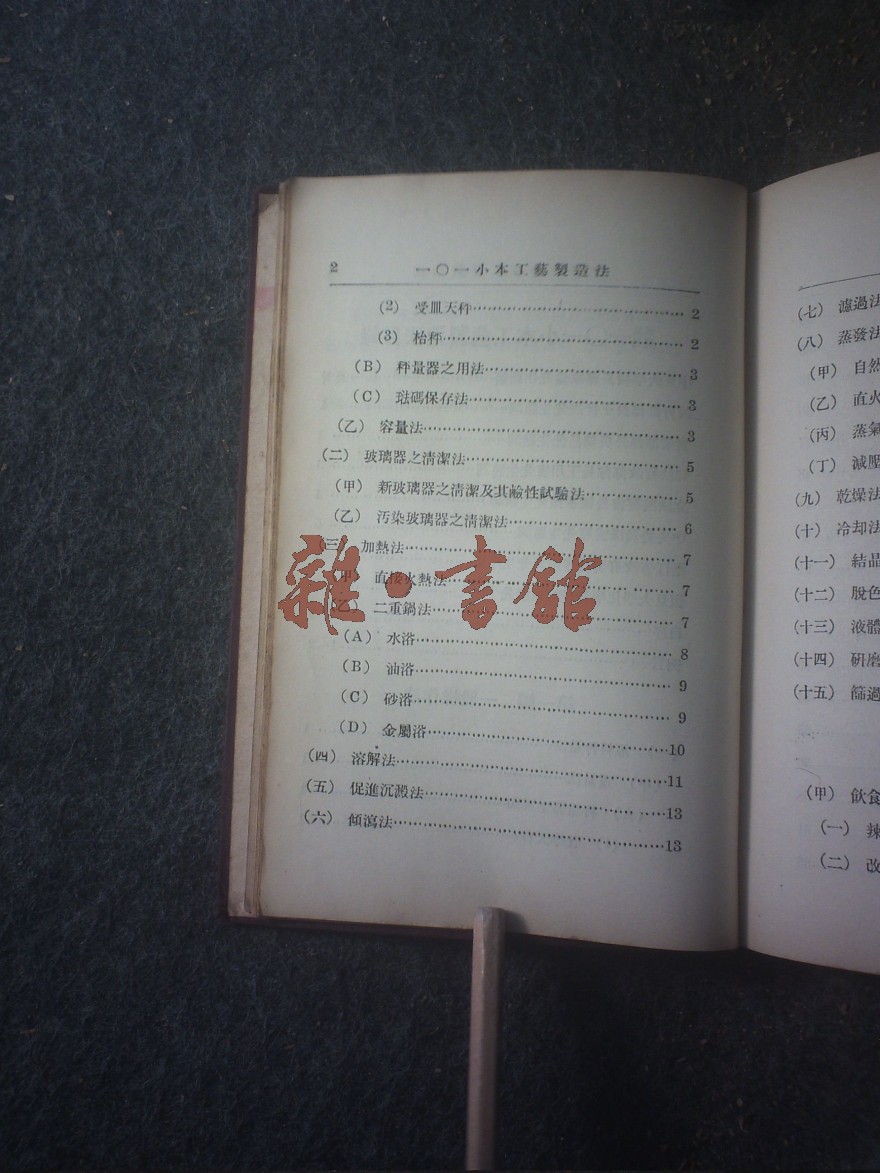 2 一〇一小本工藝製造法
(2) 受皿天秤 2
(3) 枱秤 2
(B) 秤量器之用法 3
(C) 琺碼保存法 3
(乙) 容量法 3
(二) 玻璃器之清潔法 5
(甲) 新玻璃器之清潔及其鹼性試驗法 5
(乙) 汚染玻璃器之清潔法 6
(三) 加熱法 7
(甲) 直接火熱法 7
(乙) 二重鍋法 7
(A) 水浴 8
(B) 油浴 9
(C) 砂浴 9
(D) 金屬浴 10
(四) 溶解法 11
(五) 促進沉澱法 13
(六) 傾瀉法 13
雜·書館
(七) 濾過法
(八) 蒸發法
(甲) 自然
(乙) 直火
(丙) 蒸氣
(丁) 減壓
(九) 乾燥法
(十) 冷却法
(十一) 結晶
(十二) 脫色
(十三) 液體
(十四) 研磨
(十五) 篩過
(甲) 飲食
(一) 辣
(二) 改